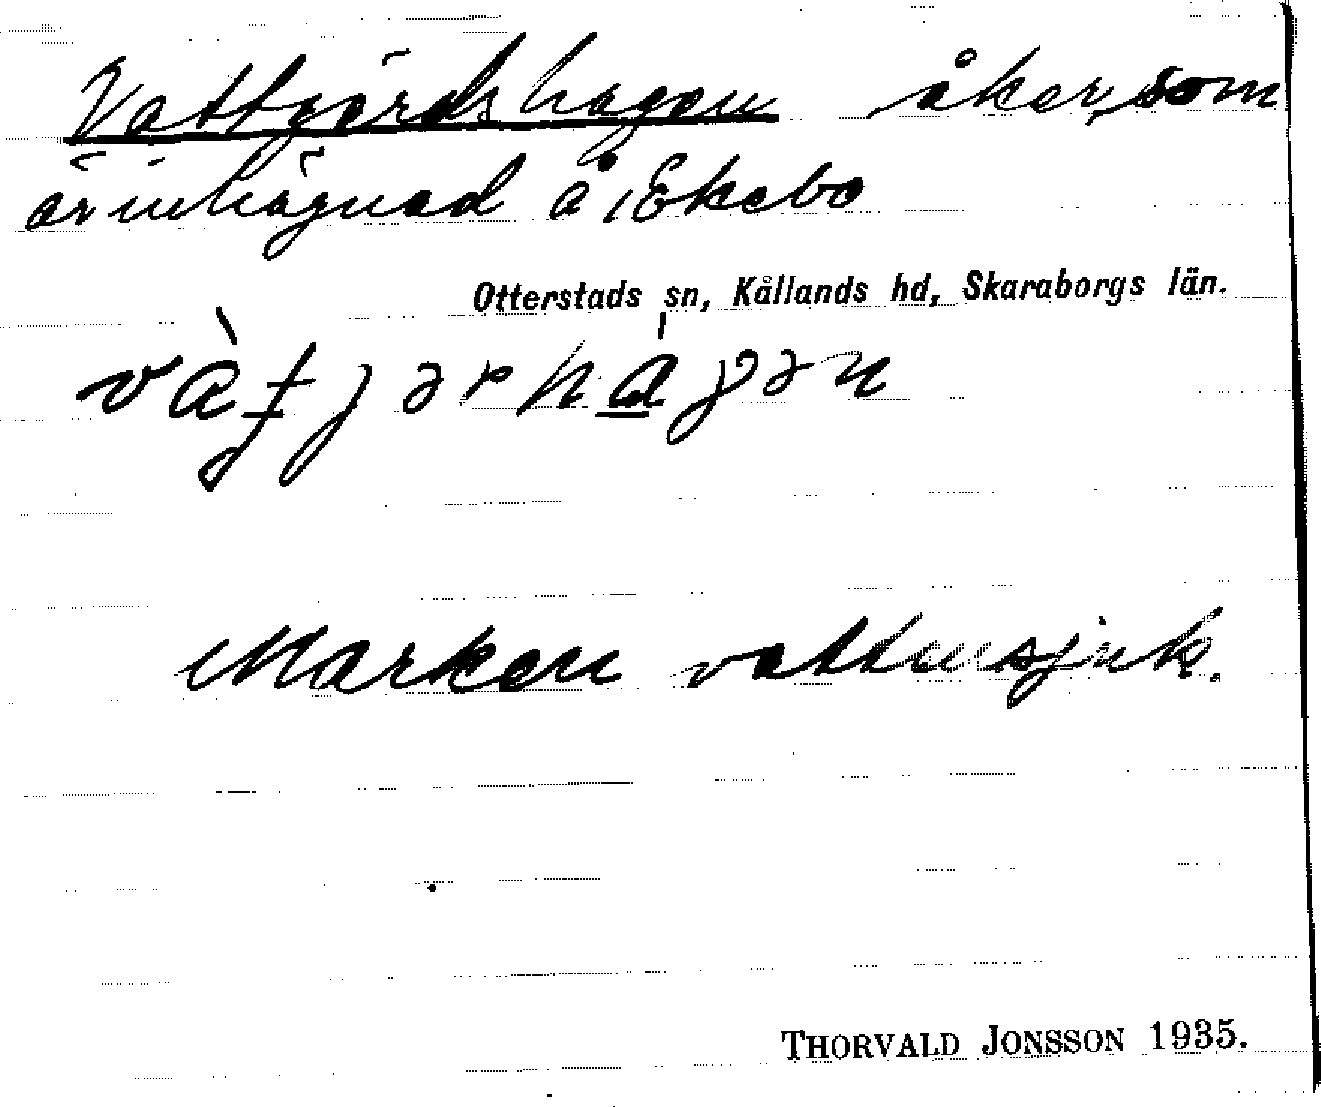 Vattgärdshagen åker, som
är inhägnad å, Ekebo
Otterstads sn, Kållands hd, Skaraborgs län.
Marken vattensjuk.
THORVALD JONSSON 1935.